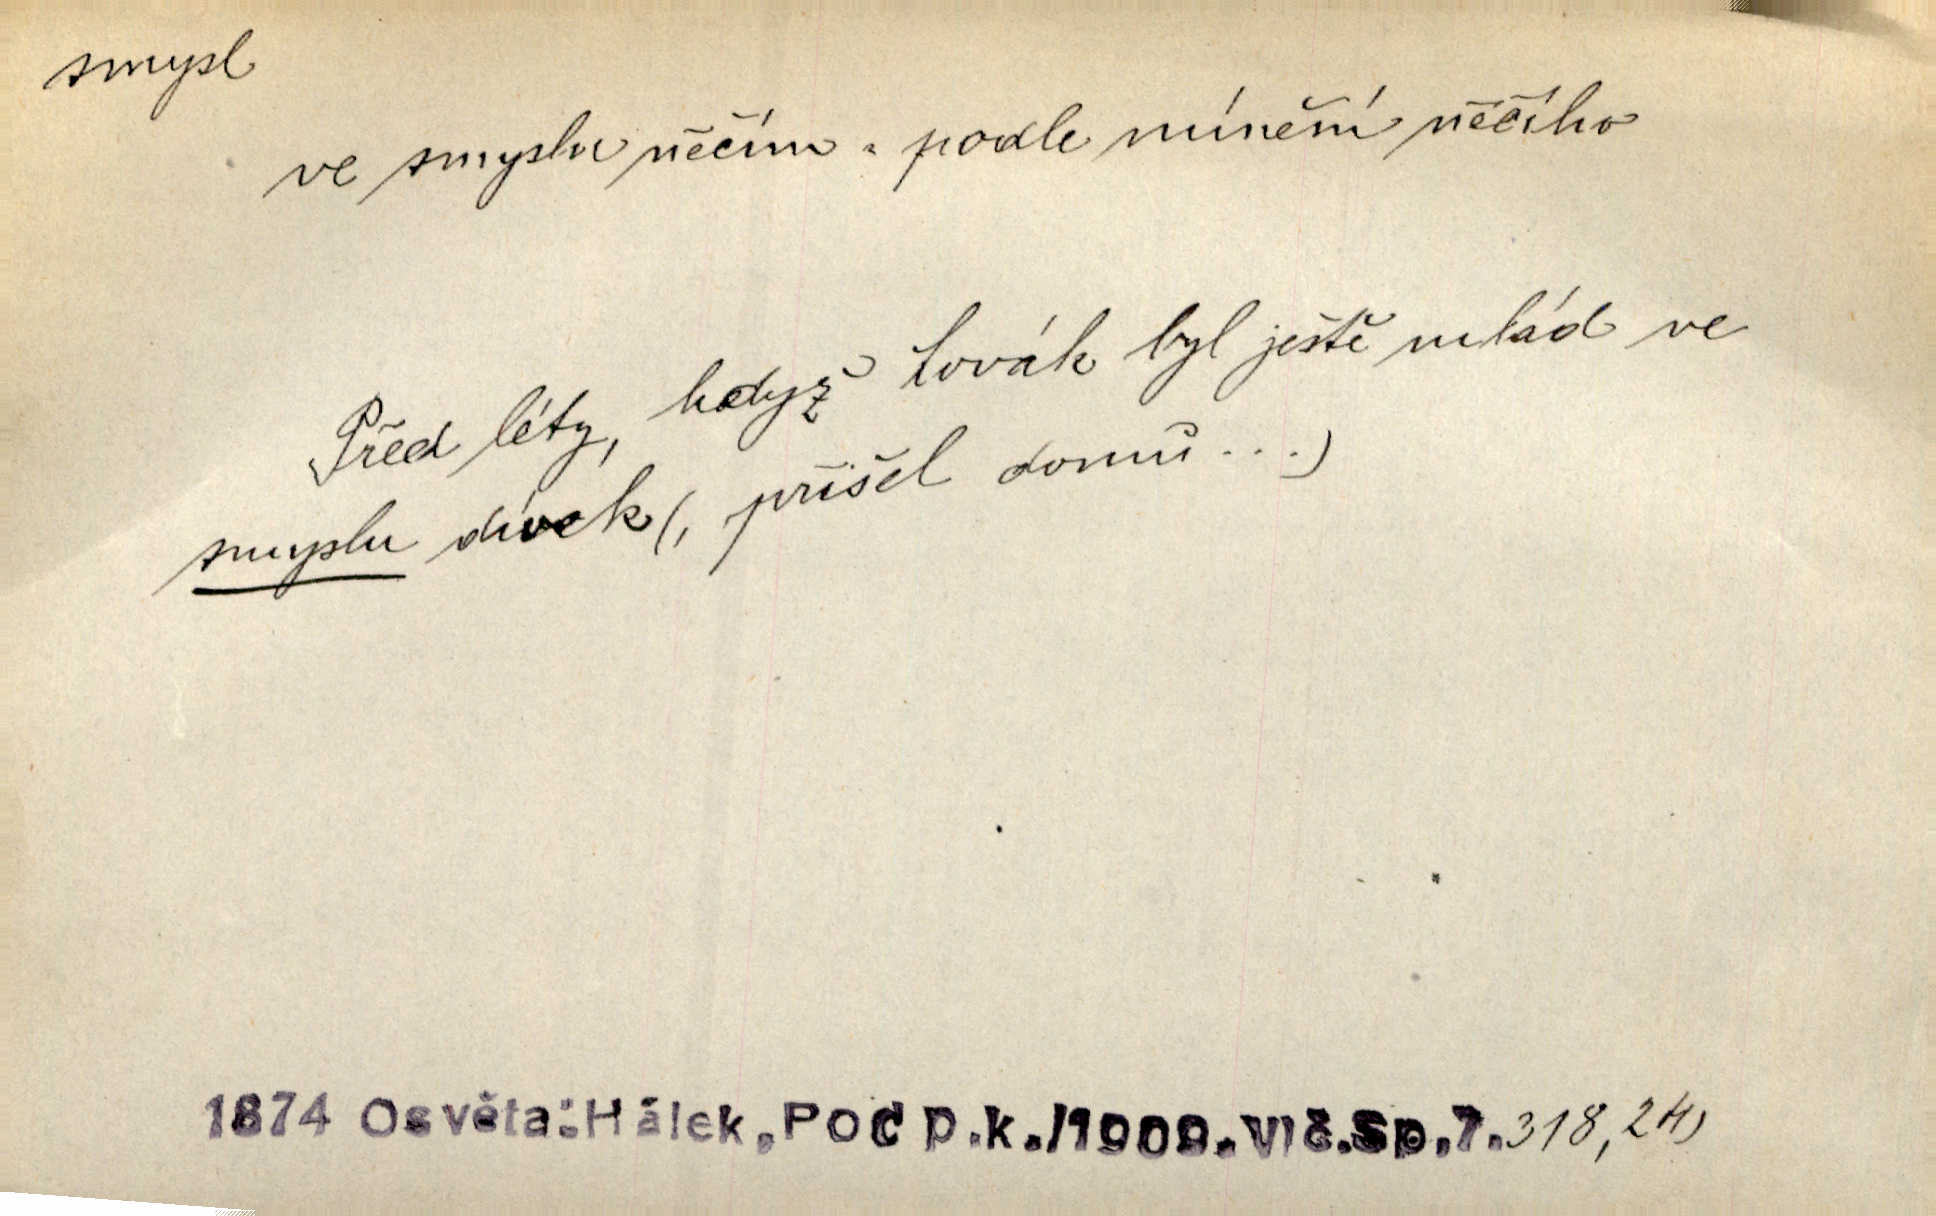 smysl
ve smyslu něčím = podle mínění něčího
Před léty, když Lovák byl ještě mlád ve
smyslu dívek (, přišel domů ...)
1874 Osvěta:Hálek,Pod p.k./1909.Vlč.Sp.7.318,24)